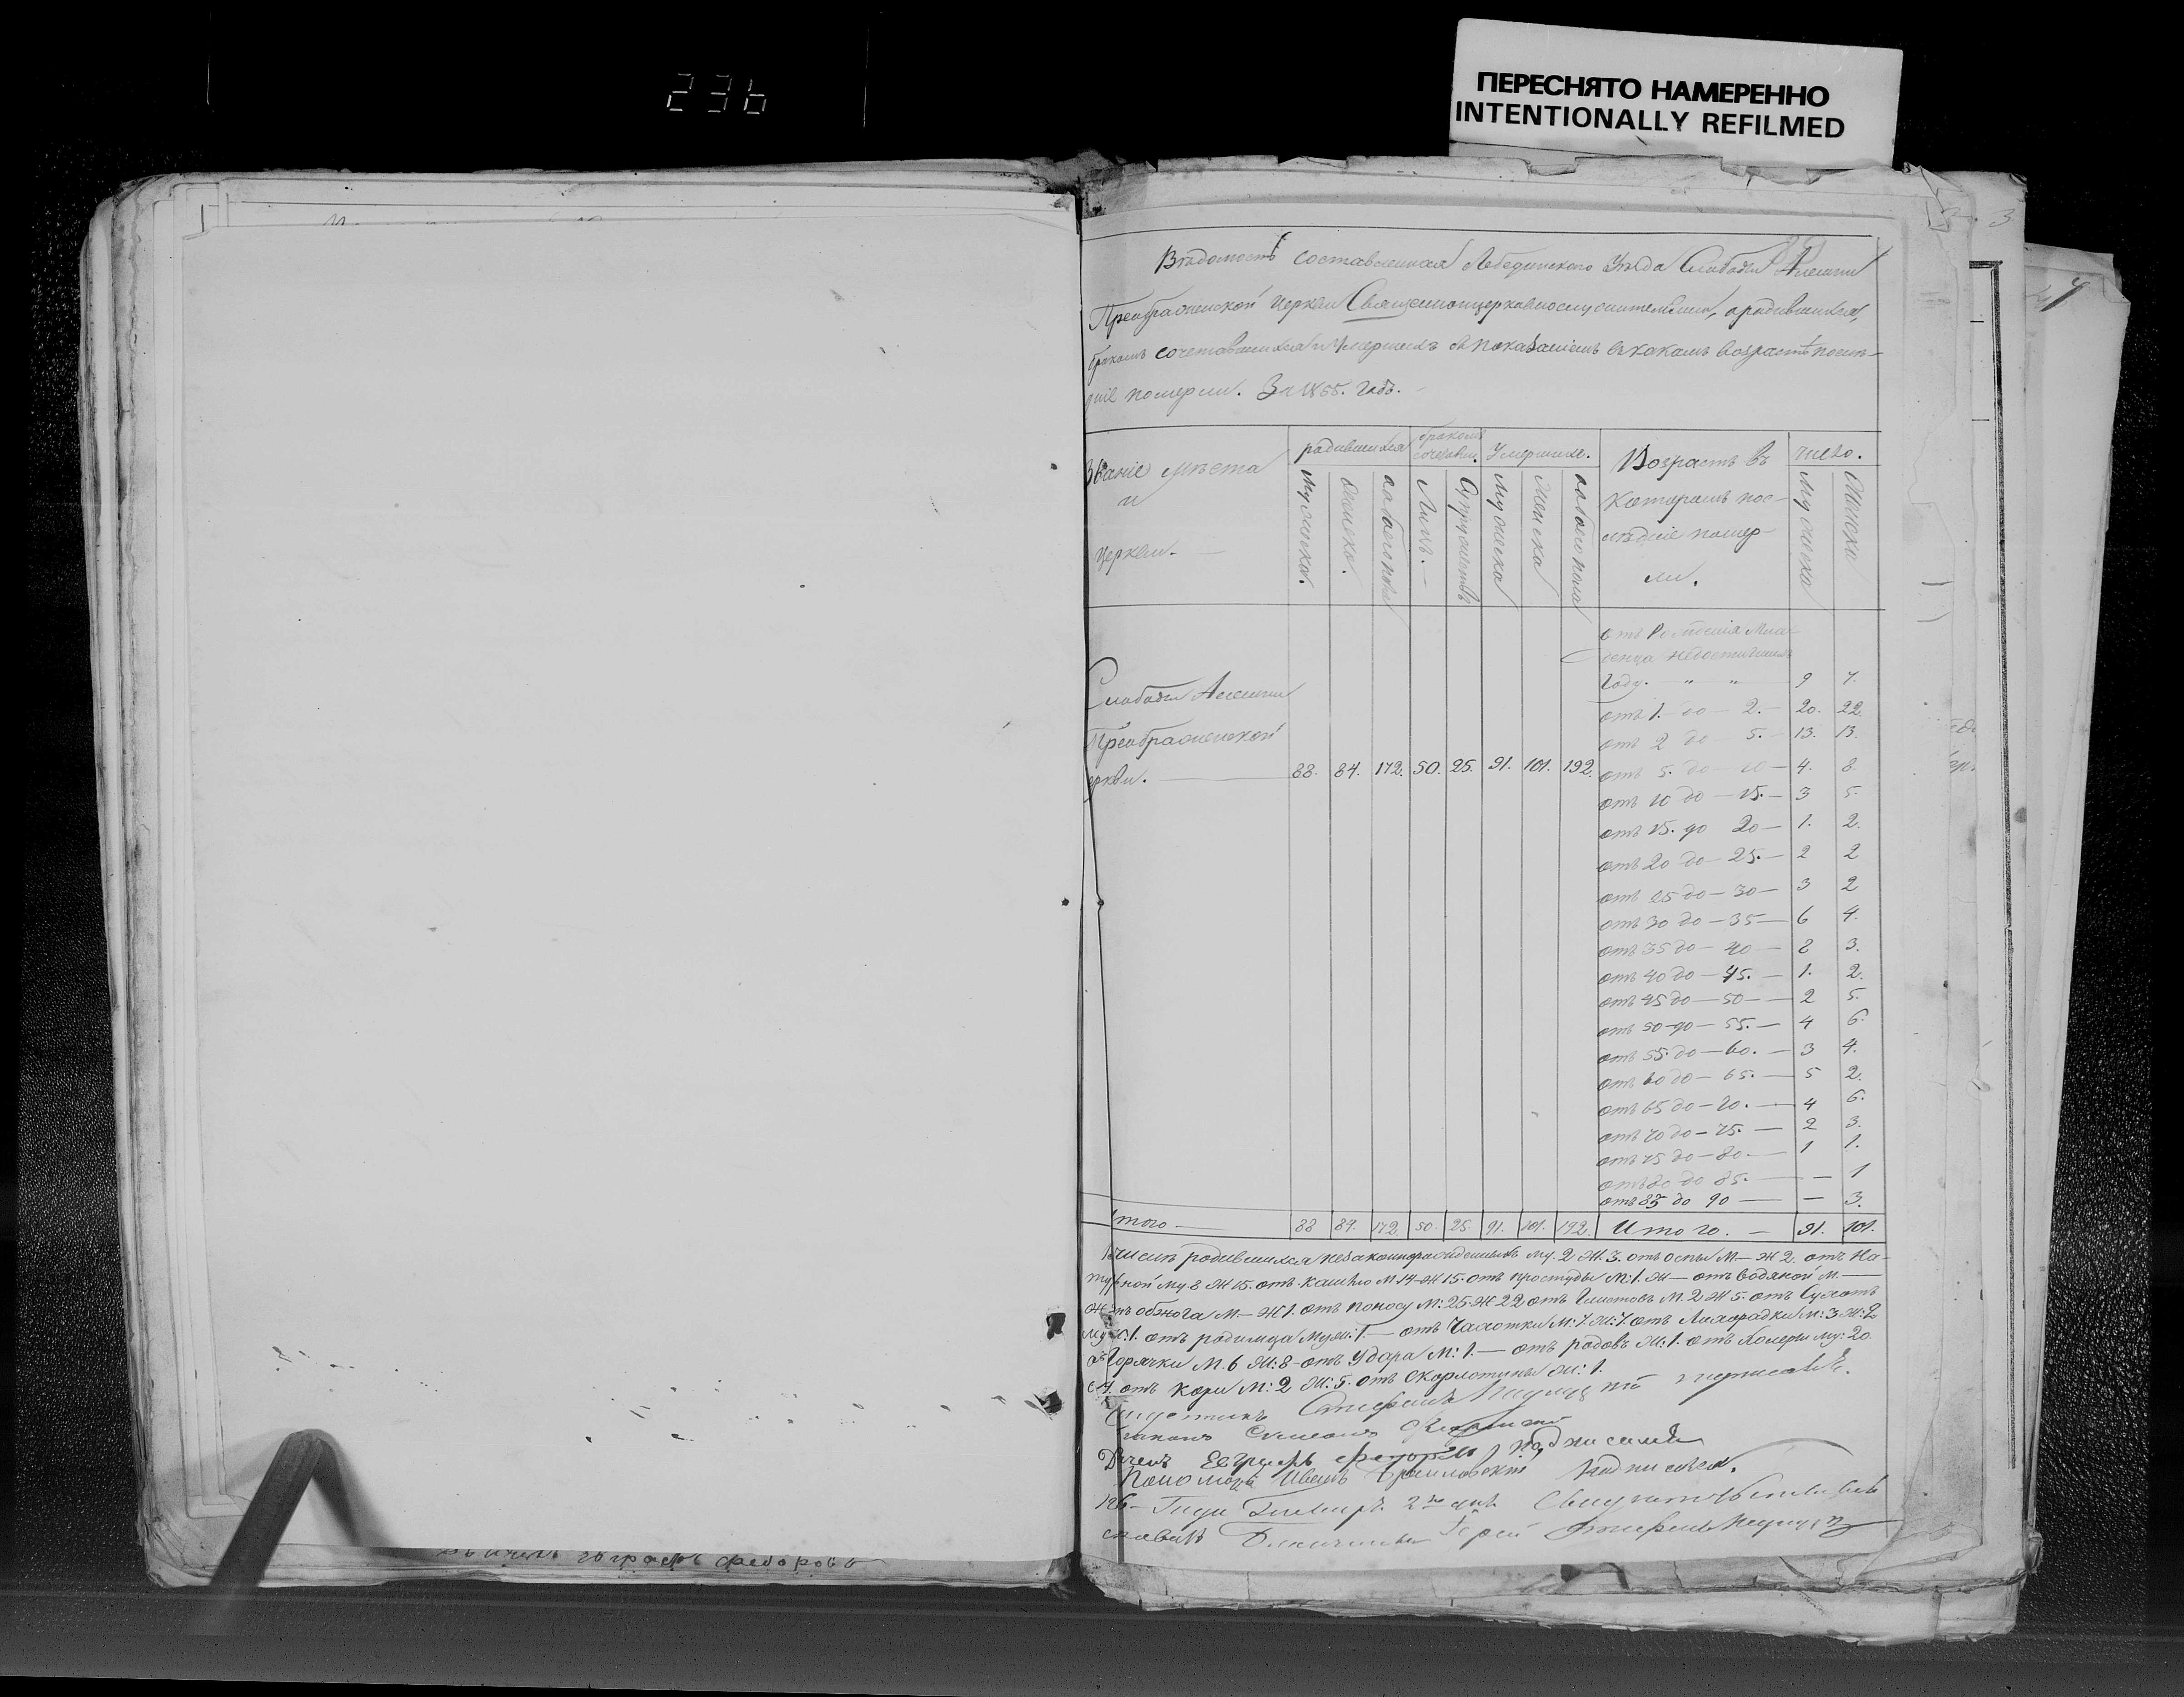 236
ПЕРЕСНЯТО НАМЕРЕННО
INTENTIONALLY REFILMED
3
Вѣдомость составленная Лебединского Уѣзда Слободы Алешни
Преображенской церкви Священноцерковнослужителями, о родившихся,
бракомъ сочетавшихся и Умершихъ съ показаніемъ въ какомъ возрастѣ послѣ-
дніе померли. За 1855. годъ.
Званіе мѣста
и
церкви.
родившихся
бракомъ сочетавш.
Умершихъ.
Возрастъ въ
которомъ пос-
лѣдніе помер-
ли.
число.
Мужска. женска. обоего пола Лицъ. Супружествъ Мужеска Женска обоего пола Мужеска Женска
отъ рожденія Мла-
денца недостигших
году. " " 9 7.
Слободы Алешни
Преображенской
церкви. 88. 84. 172. 50. 25. 91. 101. 192.
отъ 1. до 2. 20. 22.
отъ 2 до 5. 13. 13.
отъ 5. до 10 4. 8.
отъ 10 до 15. 3 5.
отъ 15. до 20 1. 2.
отъ 20 до 25. 2 2
отъ 25 до 30 3 2
отъ 30 до 35 6 4.
отъ 35 до 40 8 3.
отъ 40 до 45. 1. 2.
отъ 45 до 50 2 5.
отъ 50 до 55. 4 6.
отъ 55. до 60. 3 4.
отъ 60 до 65. 5 2.
отъ 65 до 70. 4 6.
отъ 70 до 75. 2 3.
отъ 75 до 80 1 1.
отъ 80 до 85. — 1
отъ 85 до 90 — 3.
Итого 88 84. 172. 50. 25. 91. 101. 192. Итого. 91. 101.
числѣ родившихся незаконнорожденныхъ му. 2 Ж. 3. отъ оспы М — Ж 2. отъ На-
турной Му. 8 Ж 15. отъ кашлю М 14 Ж 15. отъ простуды М. 1. Ж — отъ водяной М. —
М — Ж 1. отъ поносу М: 25 Ж 22 отъ Глистовъ М. 2 Ж 5. отъ
1. отъ родимца Муж: 1. — отъ Чахотки М: 7. Ж: 7 отъ Лихорадки М: 3. Ж: 2
Горячки М. 6 Ж: 8 отъ Удара М: 1. — отъ родовъ Ж: 1. отъ Холеры му: 20
отъ кори М: 2 Ж: 5. отъ Скарлотины Ж: 1.
Дьячекъ Евграфъ Федоровъ подписался
Пономарь Иванъ подписался.
Дьячекъ Евграфъ Федоровъ